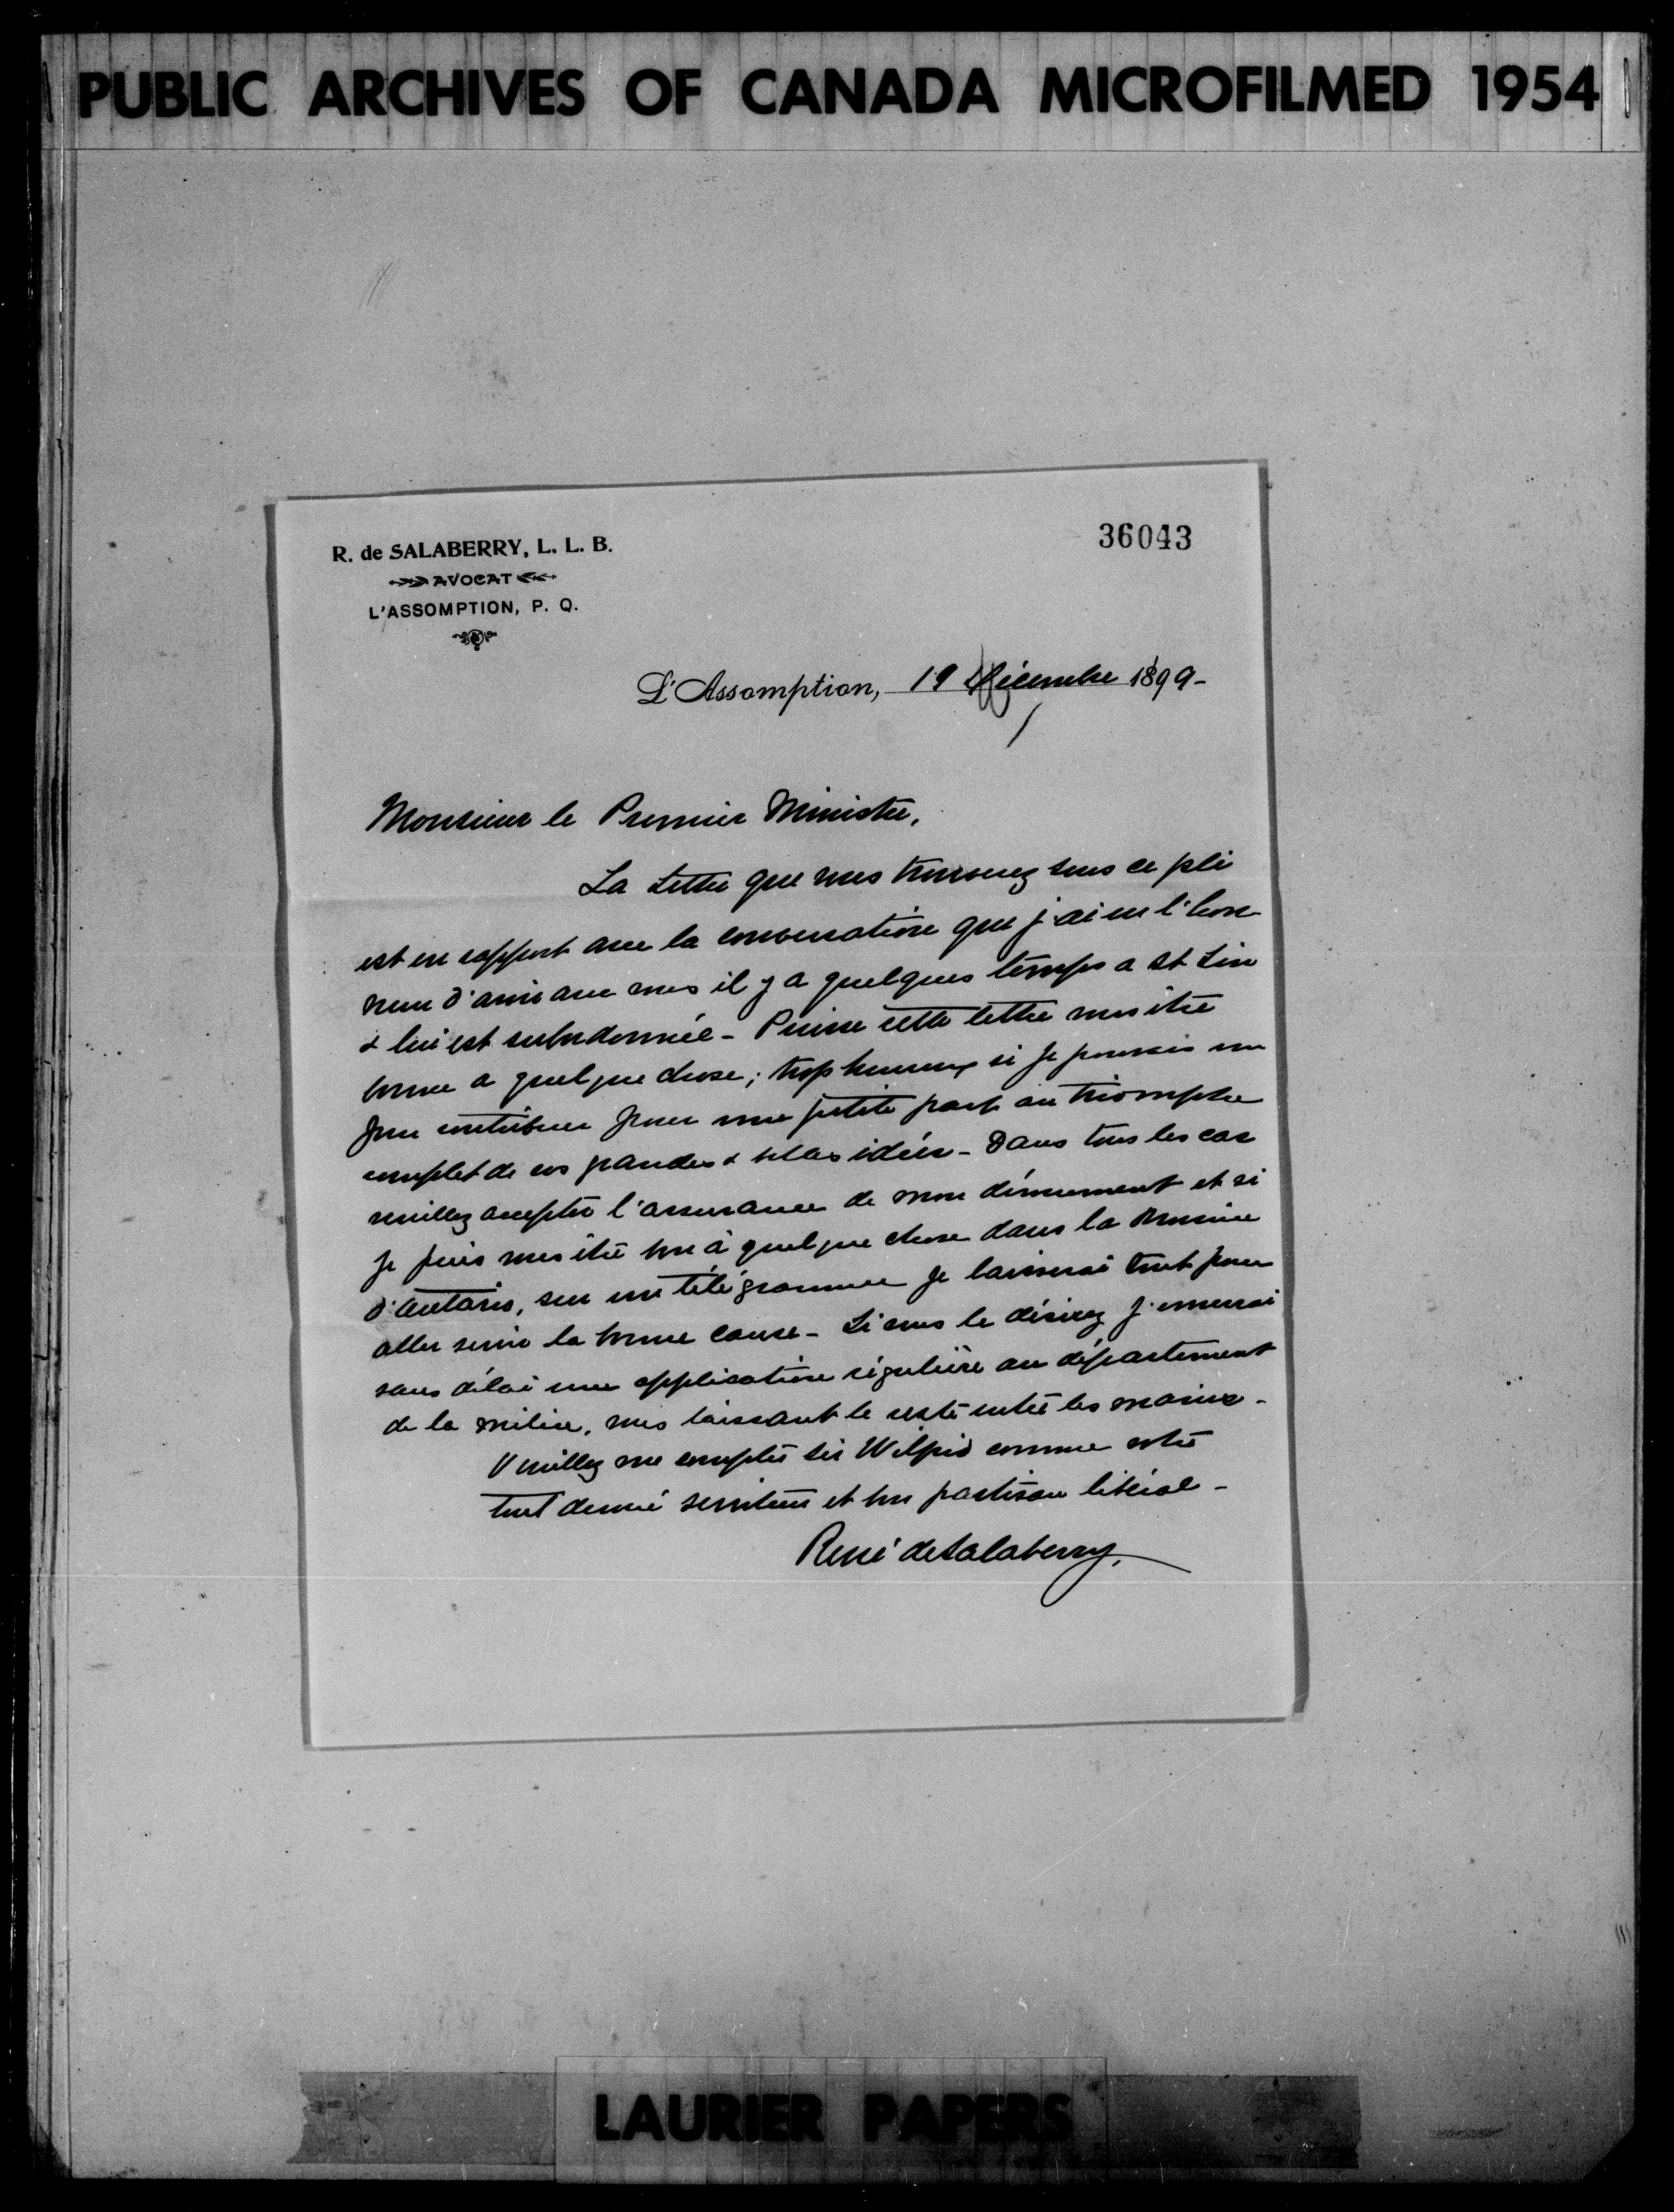 PUBLIC ARCHIVES OF CANADA MICROFILMED 1954
36043
R. de SALABERRY, L. L. B.
AVOCAT
L'ASSOMPTION, P. Q.
L'Assomption, 19 Décembre 1899-
Monsieur le Premier Ministre,
La lettre que vous trouverez sous ce pli
est en rapport avec la conversation que j'ai eu l'hon-
neur d'avoir avec vous il y a quelques temps a St Lin
& lui est subordonnée - Puisse cette lettre vous être
bonne a quelque chose; trop heureux si je pouvais un
peu contribuer pour une petite part au triomphe
complet de vos grandes & belles idées - Dans tous les cas
veuillez accepter l'assurance de mon dévouement et si
je puis vous être bon à quelque chose dans la Province
d'Ontario, sur un télégramme je laisserai tout pour
aller servir la bonne cause - Si vous le désirez j'enverrai
sans délai une application régulière au département
de la milice, vous laissant le reste entre les mains -
Veuillez me compter Sir Wilfrid comme votre
tout dévoué serviteur et bon partisan libéral -
René de Salaberry.
LAURIER PAPERS